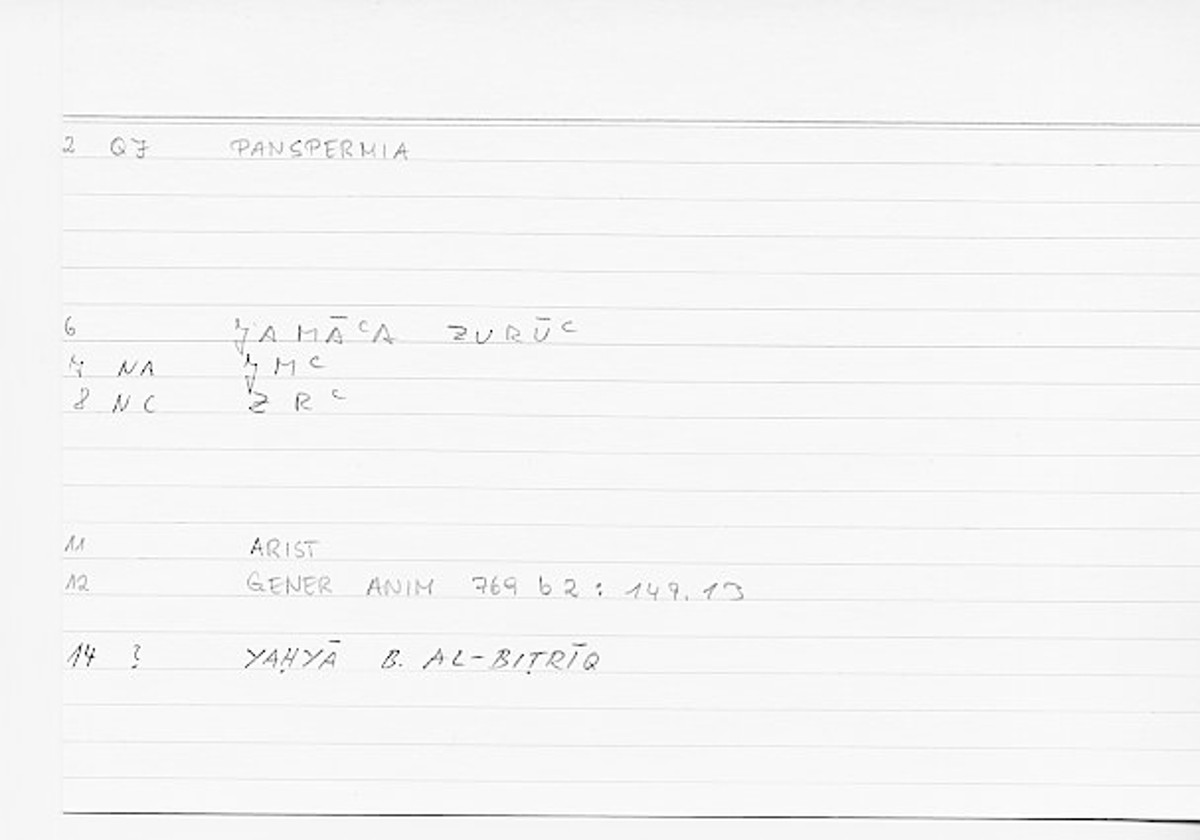 2 QF PANSPERMIA
6 ǦAMĀʿA ZURŪʿ
7 NA ǦMʿ
8 NC ZRʿ
11 ARIST
12 GENER ANIM 769 b 2 : 149.13
14 ? YAḤYĀ B. AL-BIṬRĪQ